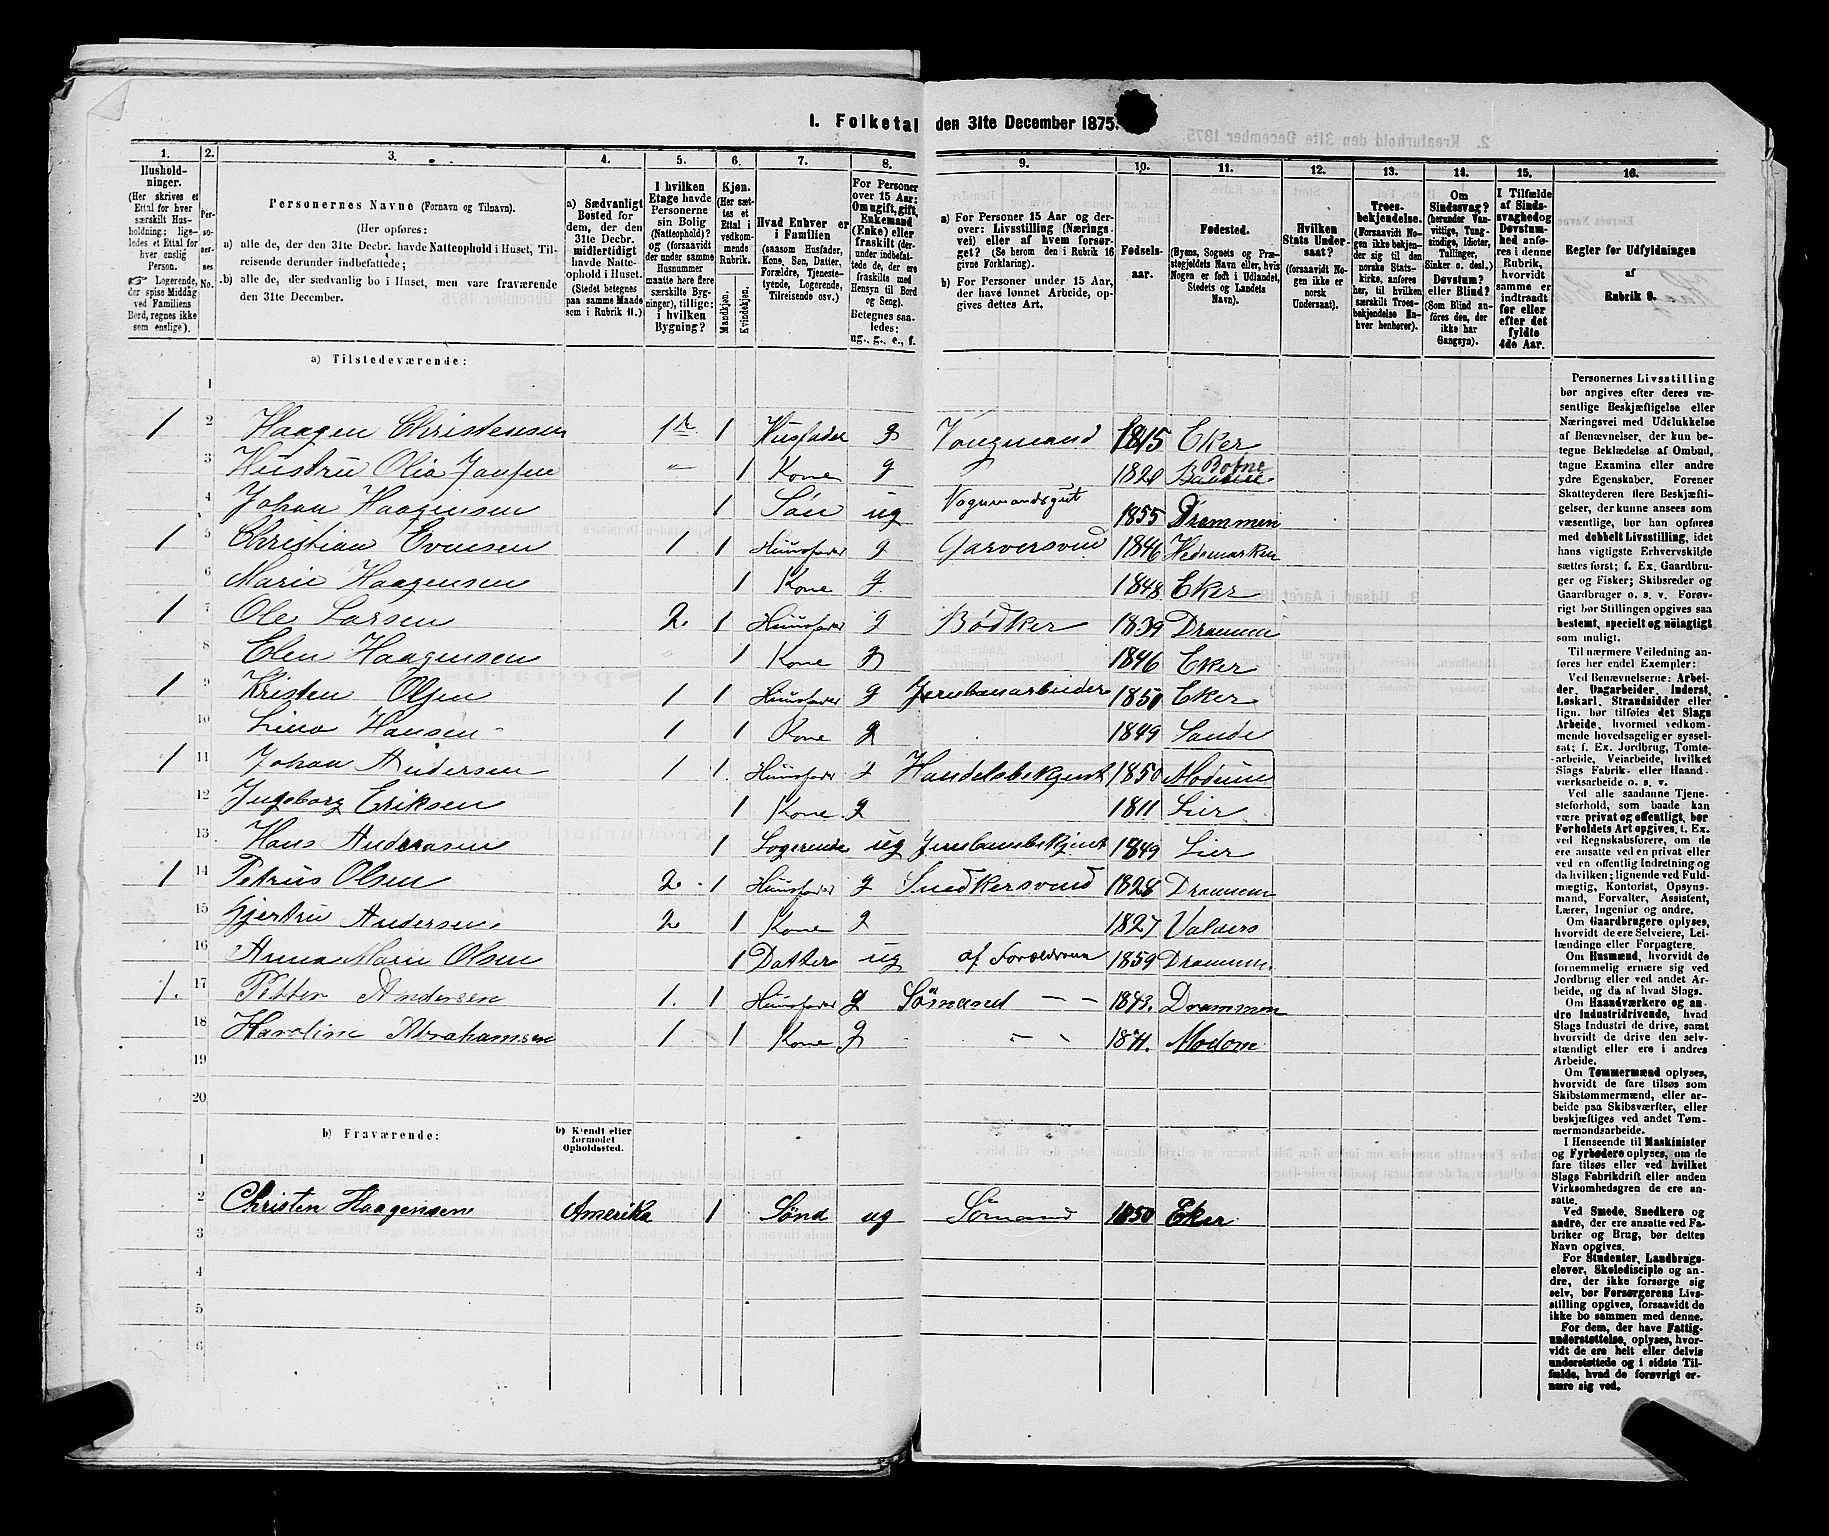 1. Folketal den 31te December 1875.
1. 2. 3. 4. 5. 6. 7. 8. 9. 10. 11. 12. 13. 14. 15. 16.
Husholdninger.
(Her skrives et
Ettal for hver
særskilt Husholdning;
ligeledes et Ettal for
hver enslig
Person.
☞ Logerende,
der spise Middag
ved Familiens
Bord, regnes ikke
som enslige).
Personernes No.
Personernes Navne (Fornavn og Tilnavn).
(Her opføres:
a) alle de, der den 31te Decbr. havde Natteophold i Huset, Tilreisende derunder indbefattede;
b) alle de, der sædvanlig bo i Huset, men vare fraværende
den 31te December.
a) Sædvanligt
Bosted for
dem, der den
31te Decbr.
midlertidigt
havde Natteophold i Huset.
(Stedet betegnes
paa samme Maade
som i Rubrik 11.)
I hvilken
Etage havde
Personerne
sin Bolig
(Natteophold)?
og (forsaavidt
der under samme
Husnummer
maatte høre flere
særskilte Bygninger), tillige:
i hvilken
Bygning?
Kjøn.
(Her sættes et
Ettal i
vedkommende
Rubrik.
Mandkjøn.
Kvindekjøn.
Hvad Enhver er
i Familien
(saasom Husfader,
Kone, Søn, Datter,
Forældre, Tjenestetyende, Logerende,
Tilreisende osv.)
For Personer
over 15 Aar:
Om ugift, gift,
Enkemand
(Enke) eller
fraskilt (derunder indbefattede de, der ere
fraskilte med
Hensyn til Bord
og Seng).
Betegnes saaledes:
ug., g., e., f.
a) For Personer 15 Aar og derover: Livsstilling (Næringsvei) eller af hvem forsørget? (Se herom den i Rubrik 16
givne Forklaring).
b) For Personer under 15 Aar,
der have lønnet Arbeide, opgives dettes Art.
Fødselsaar.
Fødested.
(Byens, Sognets og Præstegjeldets Navn eller, hvis
Nogen er født i Udlandet,
Stedets og Landets
Navn).
Hvilken
Stats Undersaat?
(forsaavidt Nogen ikke er
norsk
Undersaat).
Troesbekjendelse.
(Forsaavidt Nogen ikke bekjender sig til den
norske Statskirke, anføres
her, til hvilken
særskilt Troesbekjendelse Enhver henhører).
Om
Sindssvag?
(herunder Vanvittige, Tungsindige, Idioter,
Tullinger,
Sinker o. desl.)
Døvstum?
eller Blind?
(Som Blind anføres den, der
ikke har
Gangsyn).
I Tilfælde
af Sindssvaghed og
Døvstumhed anføres i denne
Rubrik,
hvorvidt
samme er
indtraadt
før eller
efter det
fyldte
4de Aar.
Regler for Udfyldningen
af
Rubrik 9.
a) Tilstedeværende:
1
1 2 Haagen Christensen 1 1 Husfader g 1815 Eker
3 Hustru Olia Jansen " 1 Kone g 1820 Botne
4 Johan Haagensen 1 Søn ug 1855 Drammen
1 5 Christian Evensen 1 1 Huusfader g Garversvend 1846 Hedemarken
6 Marie Haagensen 1 Kone g 1848 Eker
1 7 Ole Larsen 2. 1 Huusfader g Bødker 1839 Drammen
8 Elen Haagensen " 1 Kone g 1846 Eker
1 9 Kristen Olsen 1 1 Huusfader g Jernbanarbeider 1850 Eker
10 Lina Hansen 1 1 Kone g 1849 Sande
1 11 Johan Andersen 1 1 Huusfader g Handelsbetjent 1850 Modum
12 Ingeborg Eriksen 1 Kone g 1811 Lier
13 Hans Anderssen 1 Logerende ug 1849 Lier
1 14 Petrus Olsen 2 1 Huusfader g Snedkersvend 1828 Drammen
15 Gjertru Andersen 2 1 Kone g 1827 Valders
16 Anna Marie Olsen 1 Datter ug af Foreldrene 1859 Drammen.
1. 17 Petter Andersen 1. 1 Huusfader g Sømand 1843. Drammen
18 Karoline Abrahamsen 1 1 Kone g Modom
19
20
b) Fraværende:
b) Kjendt eller
formodet
Opholdssted.
1
2 Christen Haagensen Amerika 1 Sønd ug Sømand 1850 Eker
3
4
5
6
Personernes Livsstilling
bør angives efter deres væsentlige Beskjæftigelse eller
Næringsvei med Udelukkelse
af Benævnelser, der kun betegne Beklædelse af Ombud,
tagne Examina eller andre
ydre Egenskaber. Forener
Skatteyderen flere Beskjæftigelser, der kunne ansees som
væsentlige, bør han opføres
med dobbelt Livsstilling, idet
hans vigtigste Erhvervskilde
sættes først; f. Ex. Gaardbruger og Fisker; Skibsreder og
Gaardbruger o. s. v. Forøvrigt bør Stillingen opgives saa
bestemt, specielt og nøiagtigt
som muligt.
Til nærmere Veiledning anføres her endel Exempler:
Ved Benævnelserne: Arbeider, Dagarbeider, Inderst,
Løskarl, Strandsidder eller
lign. bør tilføies det Slags
Arbeide, hvormed vedkommende hovedsagelig er sysselsat; f. Ex. Jordbrug, Tomtearbeide, Veiarbeide, hvilket
Slags Fabrik- eller Haandværksarbeide o. s. v.
Ved alle saadanne Tjenesteforhold, som baade kan
være privat og offentligt, bør
Forholdets Art opgives, t. Ex.
ved Regnskabsførere, om de
ere ansatte ved en privat eller
ved en offentlig Indretning og
da hvilken; lignende ved Fuldmægtig, Kontorist, Opsynsmand, Forvalter, Assistent,
Lærer, Ingeniør og andre.
Om Gaardbrugere oplyses,
hvorvidt de ere Selveiere, Leilændinge eller Forpagtere.
Om Husmænd, hvorvidt de
fornemmelig ernære sig ved
Jordbrug eller ved andet Arbeide, og da af hvad Slags.
Om Haandværkere og andre Industridrivende, hvad
Slags Industri de drive, samt
hvorvidt de drive den selvstændigt eller ere i andres
Arbeide.
Om Tømmermænd oplyses,
hvorvidt de fare tilsøs som
Skibstømmermænd, eller arbeide paa Skibsværfter, eller
beskjæftiges ved andet Tømmermandsarbeide.
I Henseende til Maskinister
og Fyrbødere oplyses, om de
fare tilsøs eller ved hvilket
Slags Fabrikdrift eller anden
Virksomhedsgren de ere ansatte.
Ved Smede, Snedkere og
andre, der ere ansatte ved Fabriker og Brug, bør dettes
Navn opgives.
For Studenter, Landbrugselever, Skoledisciple og andre, der ikke forsørge sig
selv, bør Forsørgerens Livsstilling opgives, forsaavidt de
ikke bo sammen med denne.
For dem, der have Fattigunderstøttelse, oplyses, hvorvidt de ere helt eller delvis
understøttede og i sidste Tilfælde, hvad de forøvrigt ernære sig ved.